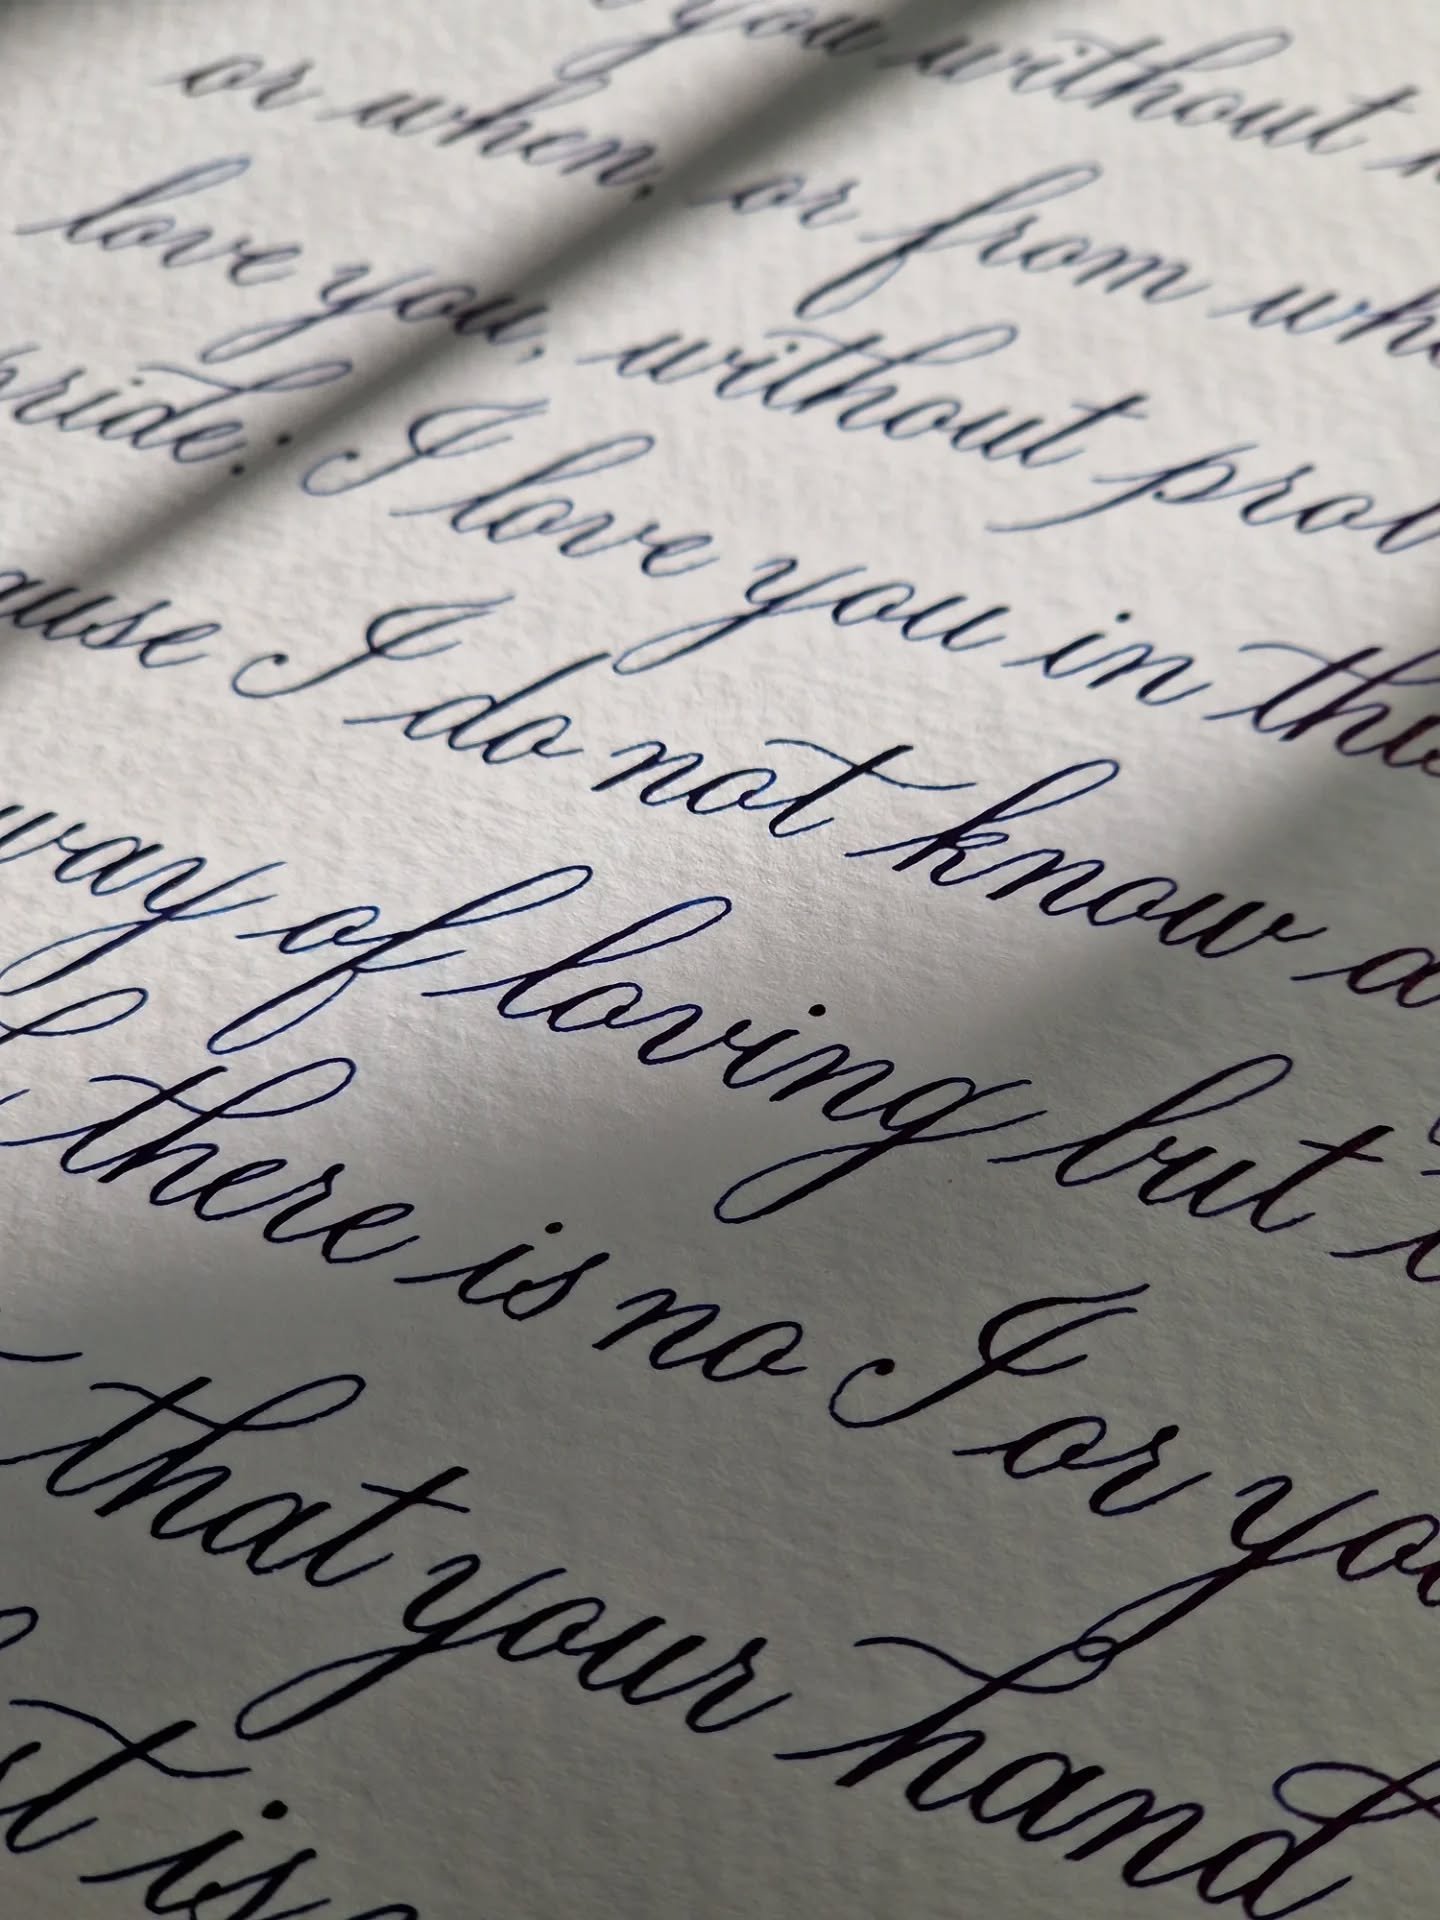 you without
or when, or from
love you, without
pride: I love you in
I do not know
way of loving but
there is no I or
that your hand
is